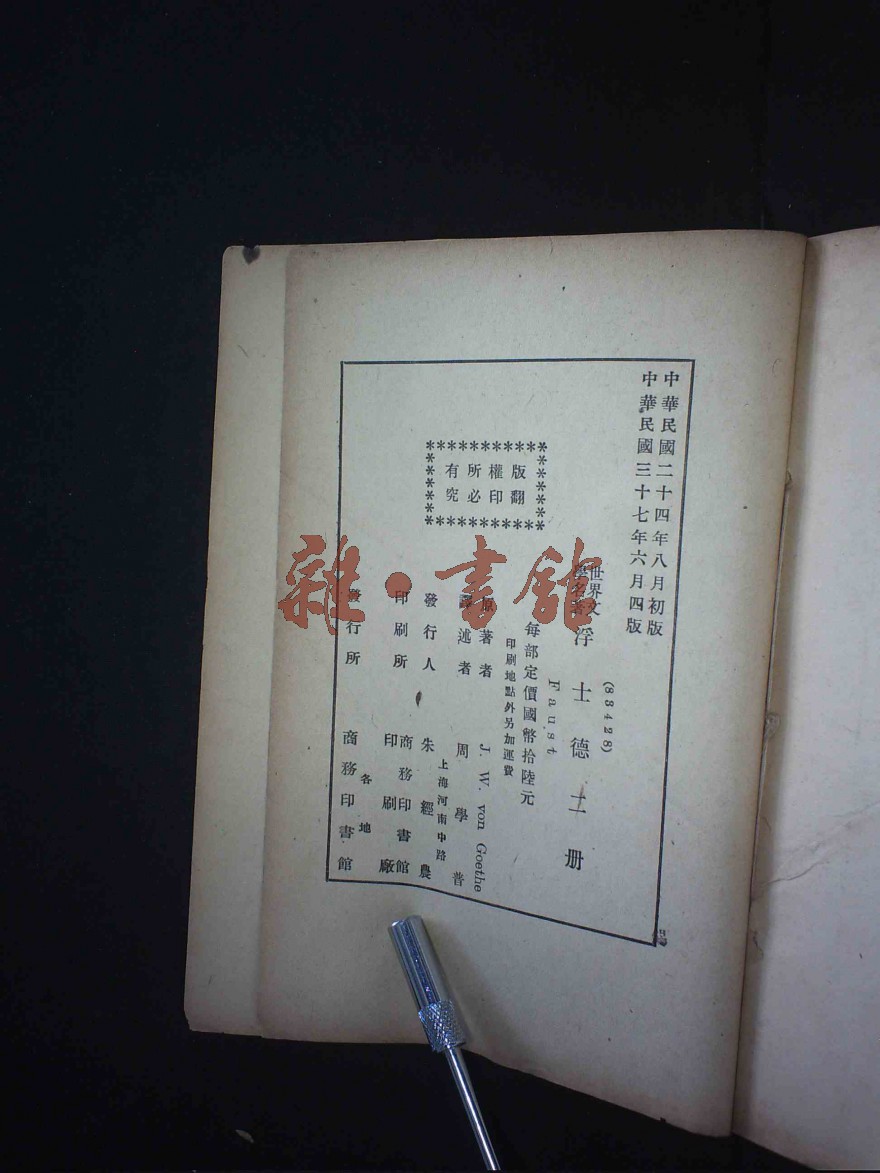 中華民國二十四年八月初版
中華民國三十七年六月四版
(83428)
世界文
學名著
浮士德一册
Faust
每部定價國幣拾陸元
印刷地點外另加運費
版權所有
翻印必究
原著者 J. W. von Goethe
譯述者 周學普
發行人 朱經農
上海河南中路
印刷所 商務印書館
印刷廠
發行所 商務印書館
各地
雜·書館